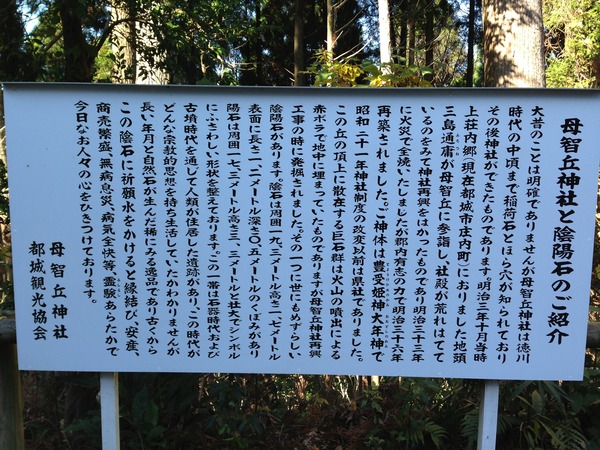 母智丘神社と陰陽石のご紹介
大昔のことは明確でありませんが母智丘神社は徳川
時代の中頃まで稲荷石とほら穴が知られており
その後神社ができたものであります。明治三年十月当時
上荘内郷(現在都城市庄内町)におりました地頭
三島通庸が母智丘に参詣し、社殿が荒れはてて
いるのをみて神社再興をはかったものであり明治三十三年
に火災で全焼いたしましたが郡内有志の力で明治三十六年
再築されました。ご神体は豊受姫神大年神で
昭和二十一年神社制度の改変以前は県社でありました。
この丘の頂上に散在する巨石群は火山の噴出による
赤ボラで地中に埋まっていたものでありますが母智丘神社再興
工事の時に発掘されました。その一つに世にもめずらしい
陰陽石があります。陰石は周囲一九、三メートル高さ二、七メートル
表面に長さ一、二メートル深さ〇、五メートルのくぼみがあり
陽石は周囲一七、三メートル高さ三、二メートルと壮大でシンボル
にふさわしい形状を整えております。この一帯は石器時代および
古墳時代を通して人類が住居した遺跡があり、この時代が
どんな宗教的思想を持ち生活していたかわかりませんが
長い年月と自然石が生んだ稀にみる逸品であり古くから
この陰石に祈願水をかけると縁結び、安産、
商売繁盛、無病息災、病気全快等、霊験あらたかで
今日なお人々の心をひきつけております。
母智丘神社
都城観光協会